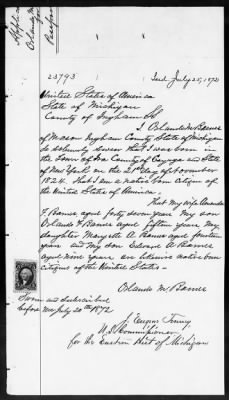 Orlando M.
Passport
23793
Issd July 25, 1872
United States of America
State of Michigan
County of Ingham SS
I Orlando M Barnes
of Mason Ingham County State of Michigan
do solemnly swear that I was born in
the Town of Ira County of Cayuga and State
of New York on the 21st day of November
1824. That I am a native born Citizen of
the United States of America.
That my wife Amanda
F. Barnes aged forty seven years My son
Orlando F. Barnes aged fifteen years My
daughter Maryette A. Barnes aged fourteen
years and my son Edward A Barnes
aged nine years are likewise native born
citizens of the United States.
Orlando M Barnes
Sworn and subscribed
before me July 20th 1872
J. Eugene Tenney
U S Commissioner
for the Eastern Dist of Michigan